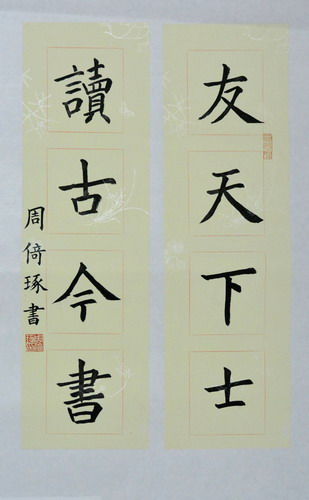 友天下士
讀古今書
周倚琢書